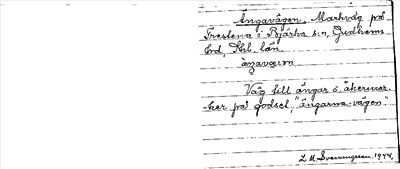 Ängavägen, Markväg på
Trestena i Bjärka sn, Gudhems
hd, Skb. län
äŋavæɪn
Väg till ängar o. åkermar-
ker på godset, "ängarna-vägen"
L. M. Svenungsson, 1944.